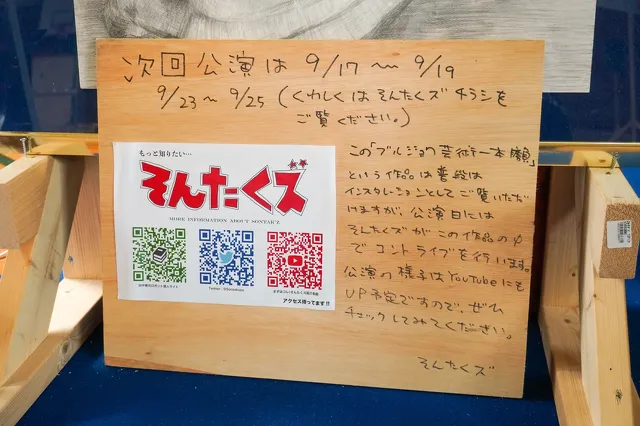 次回 公演は 9/17 〜 9/19
9/23〜9/25 (くわしくはそんたくズチラシを
ご覧ください。)
もっと知りたい…
そんたくズ
MORE INFORMATION ABOUT SONTAK'Z
Twitter
アクセス待ってます!!
この「ブルジョワ芸術一本勝負」
という作品は普段は
インスタレーションとしてご覧いただ
けますが、公演日には
そんたくズがこの作品の中
でコントライブを行います。
公演の様子はYouTubeにも
UP予定ですので、ぜひ
チェックしてみてください。
そんたくズ